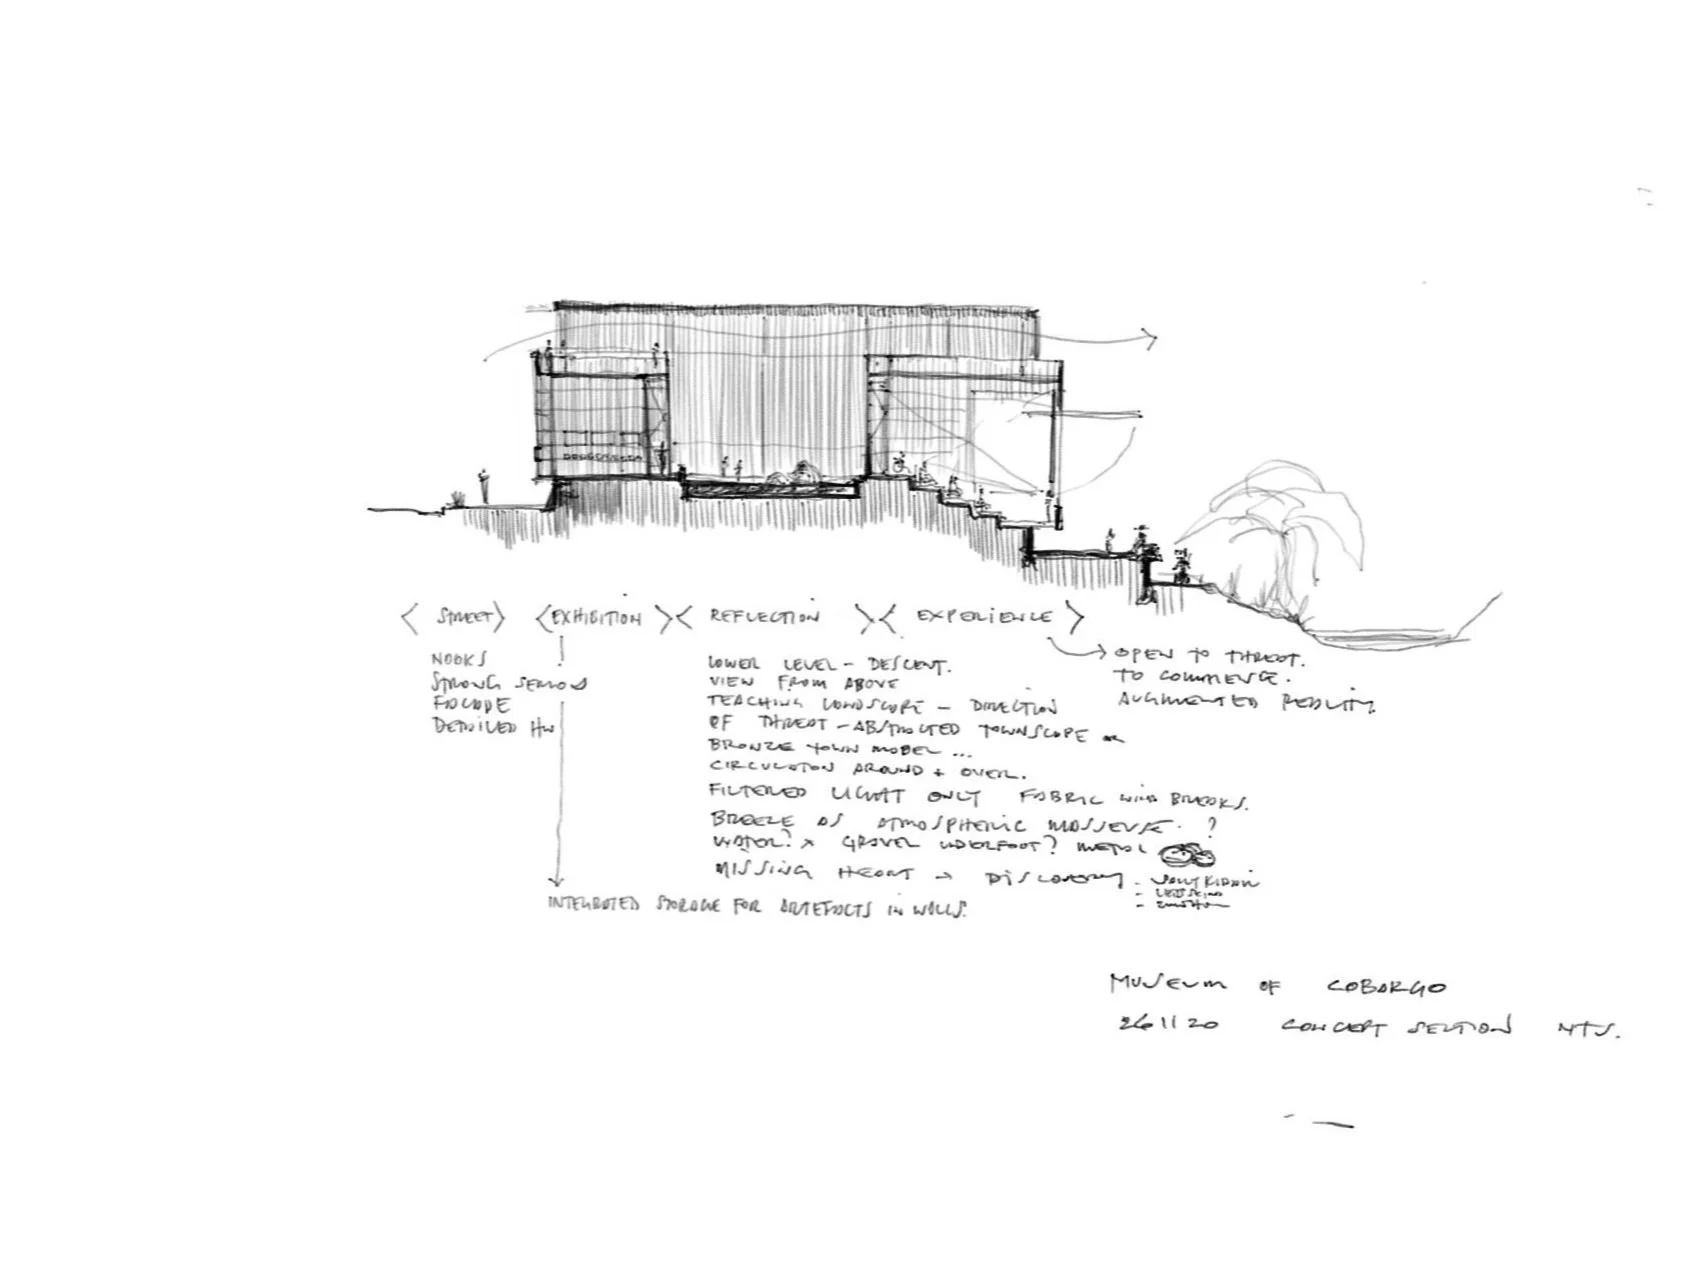 < STREET > < EXHIBITION > < REFLECTION > < EXPERIENCE >
NOOKS
STRONG SERIOUS
FACADE
DETAILED HW
INTEGRATED STORAGE FOR ARTEFACTS IN WALLS.
LOWER LEVEL - DESCENT.
VIEW FROM ABOVE
TEACHING LANDSCAPE - DIRECTION
OF THREAT - ABSTRACTED TOWNSCAPE OR
BRONZE TOWN MODEL ...
CIRCULATION AROUND + OVER.
FILTERED LIGHT ONLY FABRIC WIND BREAKS.
BREEZE AS ATMOSPHERIC MASSEUSE. ?
WATER? x GRAVEL UNDERFOOT? METAL
MISSING HEART → DISCOVERY
OPEN TO THREAT.
TO COMMENCE.
AUGMENTED REALITY.
MUSEUM OF COBARGO
261120 CONCEPT SECTION NTS.